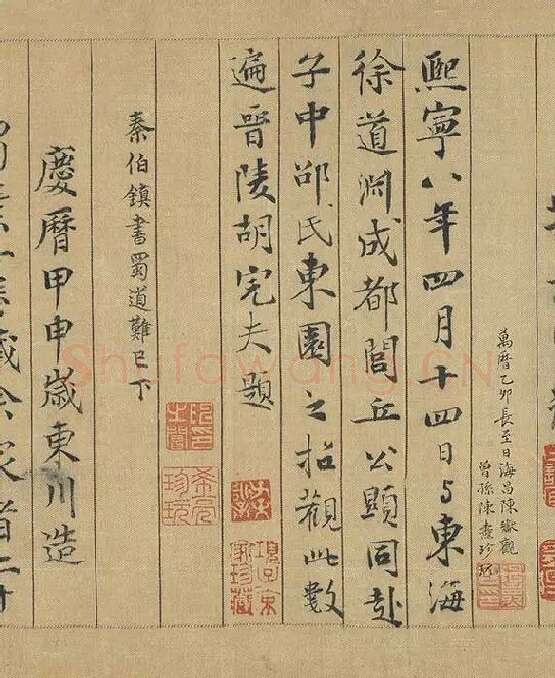 萬曆乙卯長至日海昌陳觀
曾孫陳珍
熙寧八年四月十四日与東海
徐道渊成都閭丘公顯同赴
子中邵氏東園之招觀此數
遍晉陵胡完夫題
項子京家珍藏
秦伯鎮書蜀道難已下
慶曆甲申歲東川造
素一藏余家者二十
Shufawang.CN